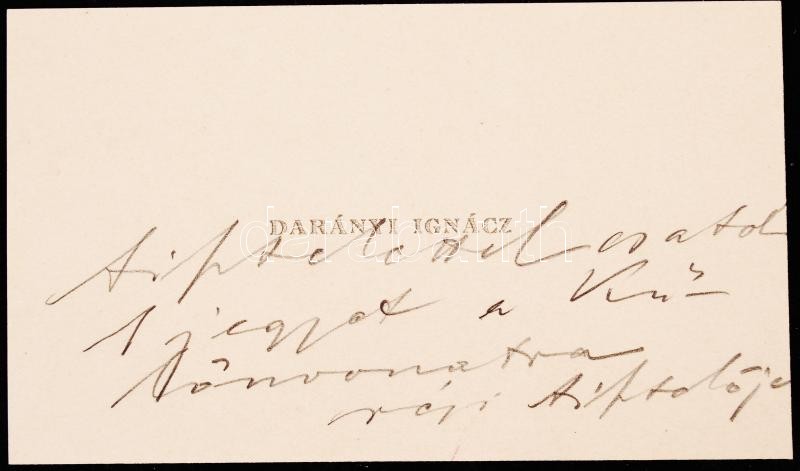 DARÁNYI IGNÁCZ
tisztelettel csatol
1 jegyet a Kü-
lönvonatra
régi tisztelője